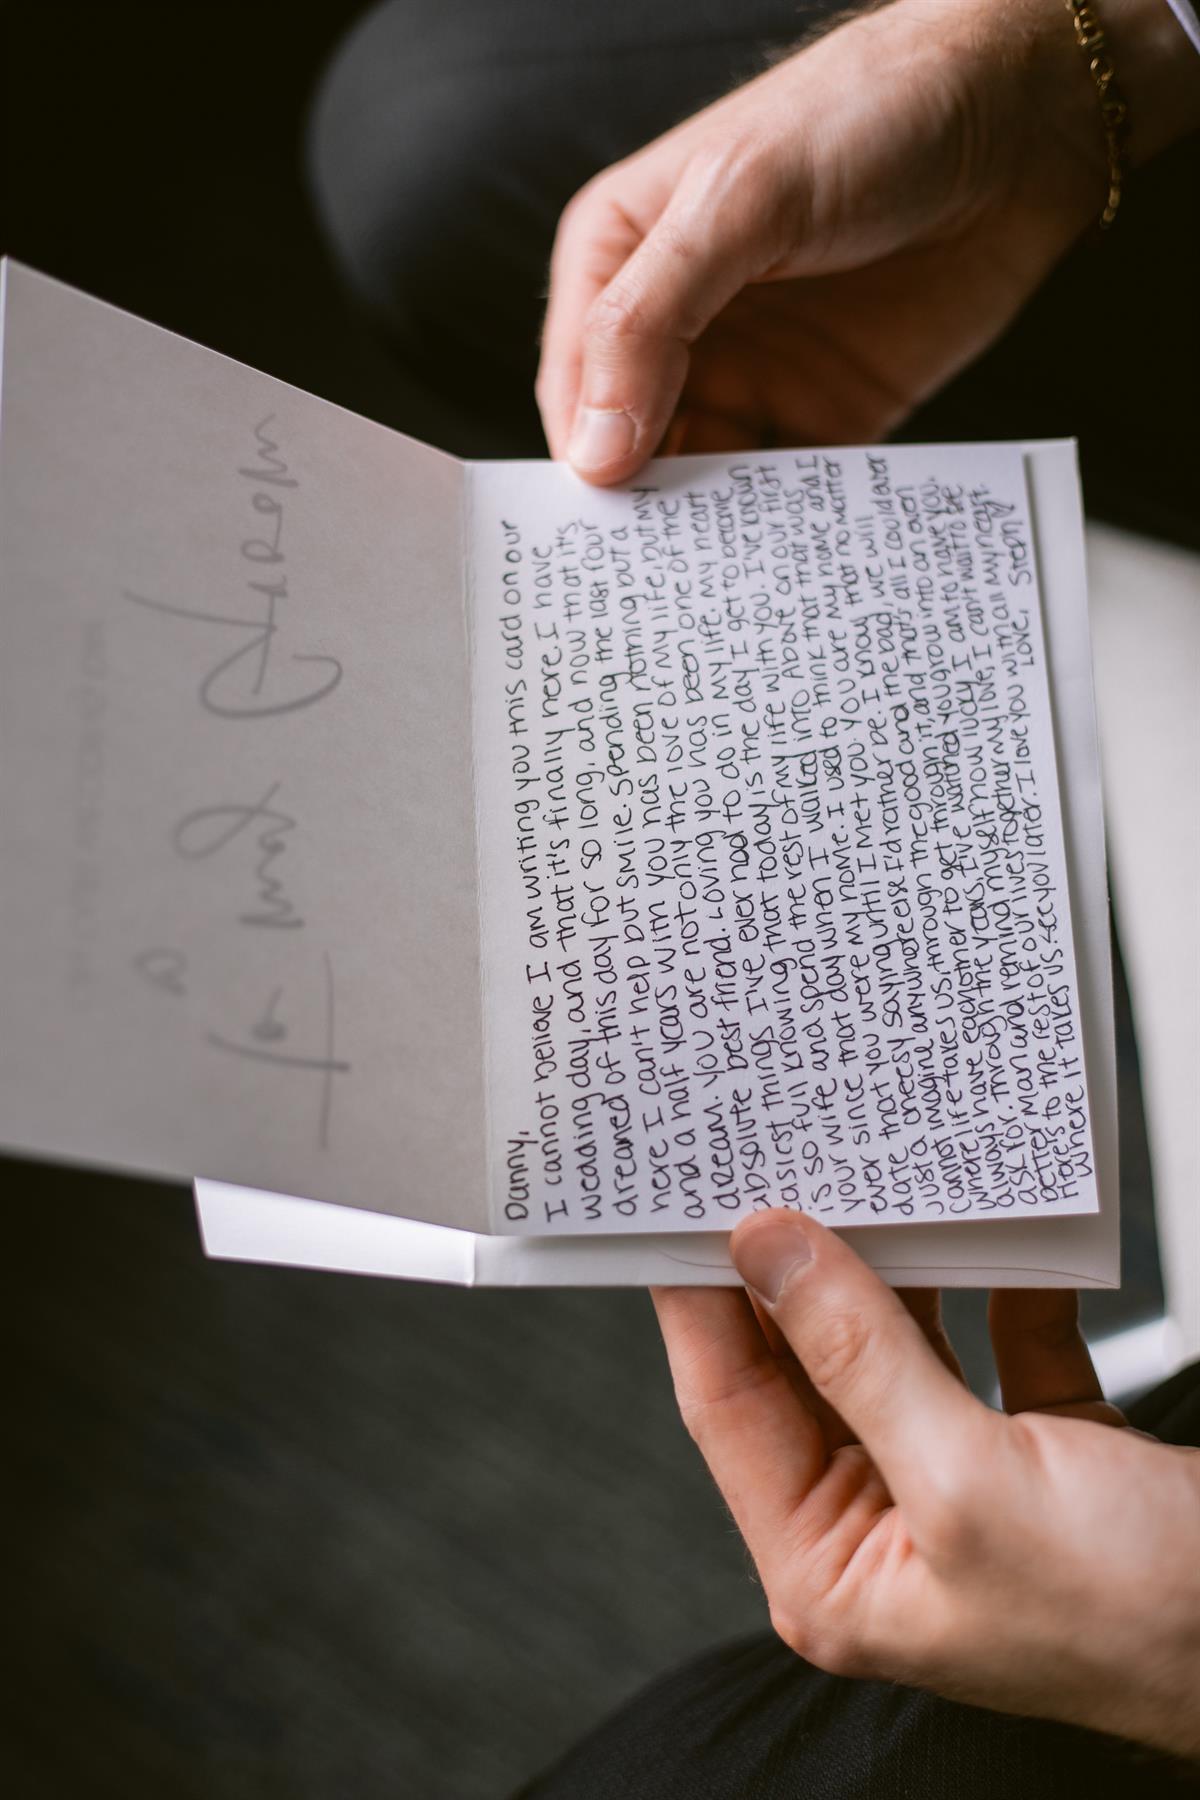 To my Groom
Danny,
I cannot believe I am writing you this card on our
wedding day, and that it's finally here. I have
dreamed of this day for so long, and now that it's
here I can't help but smile. Spending the last four
and a half years with you has been nothing but a
dream. You are not only the love of my life, but my
absolute best friend. Loving you has been one of the
easiest things I've ever had to do in my life. My heart
is so full knowing that today is the day I get to become
your wife and spend the rest of my life with you. I've known
ever since that day when I walked into Above on our first
date that you were my home. I used to think that that was
just a cheesy saying until I met you. You are my home and I
cannot imagine anywhere else I'd rather be. I know that no matter
where life takes us, through the good and the bad, we will
always have eachother to get through it, and that's all I could ever
ask for. Through the years, I've watched you grow into an even
better man and remind myself how lucky I am to have you.
Here's to the rest of our lives together my love, I can't wait to see
where it takes us. See you later. I love you with all my heart.
Love, Steph